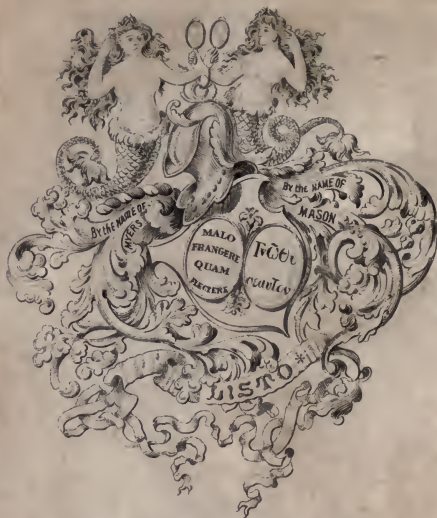 By the NAME OF
By the NAME OF
MASON
MALO
FRANGERE
QUAM
FLECTERE
Γνῶθι
σεαυτον
LISTO